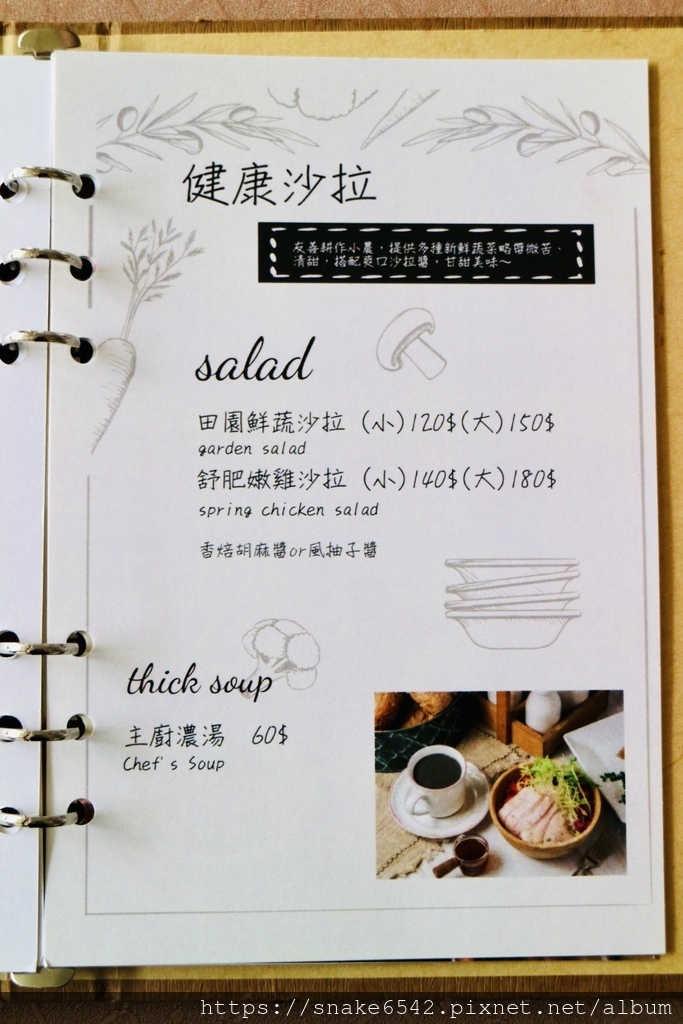 健康沙拉
友善耕作小農，提供多種新鮮蔬菜略帶微苦、
清甜，搭配爽口沙拉醬，甘甜美味～
salad
田園鮮蔬沙拉 (小)120$(大)150$
garden salad
舒肥嫩雞沙拉 (小)140$(大)180$
spring chicken salad
香焙胡麻醬or風柚子醬
thick soup
主廚濃湯 60$
Chef's Soup
https://snake6542.pixnet.net/album